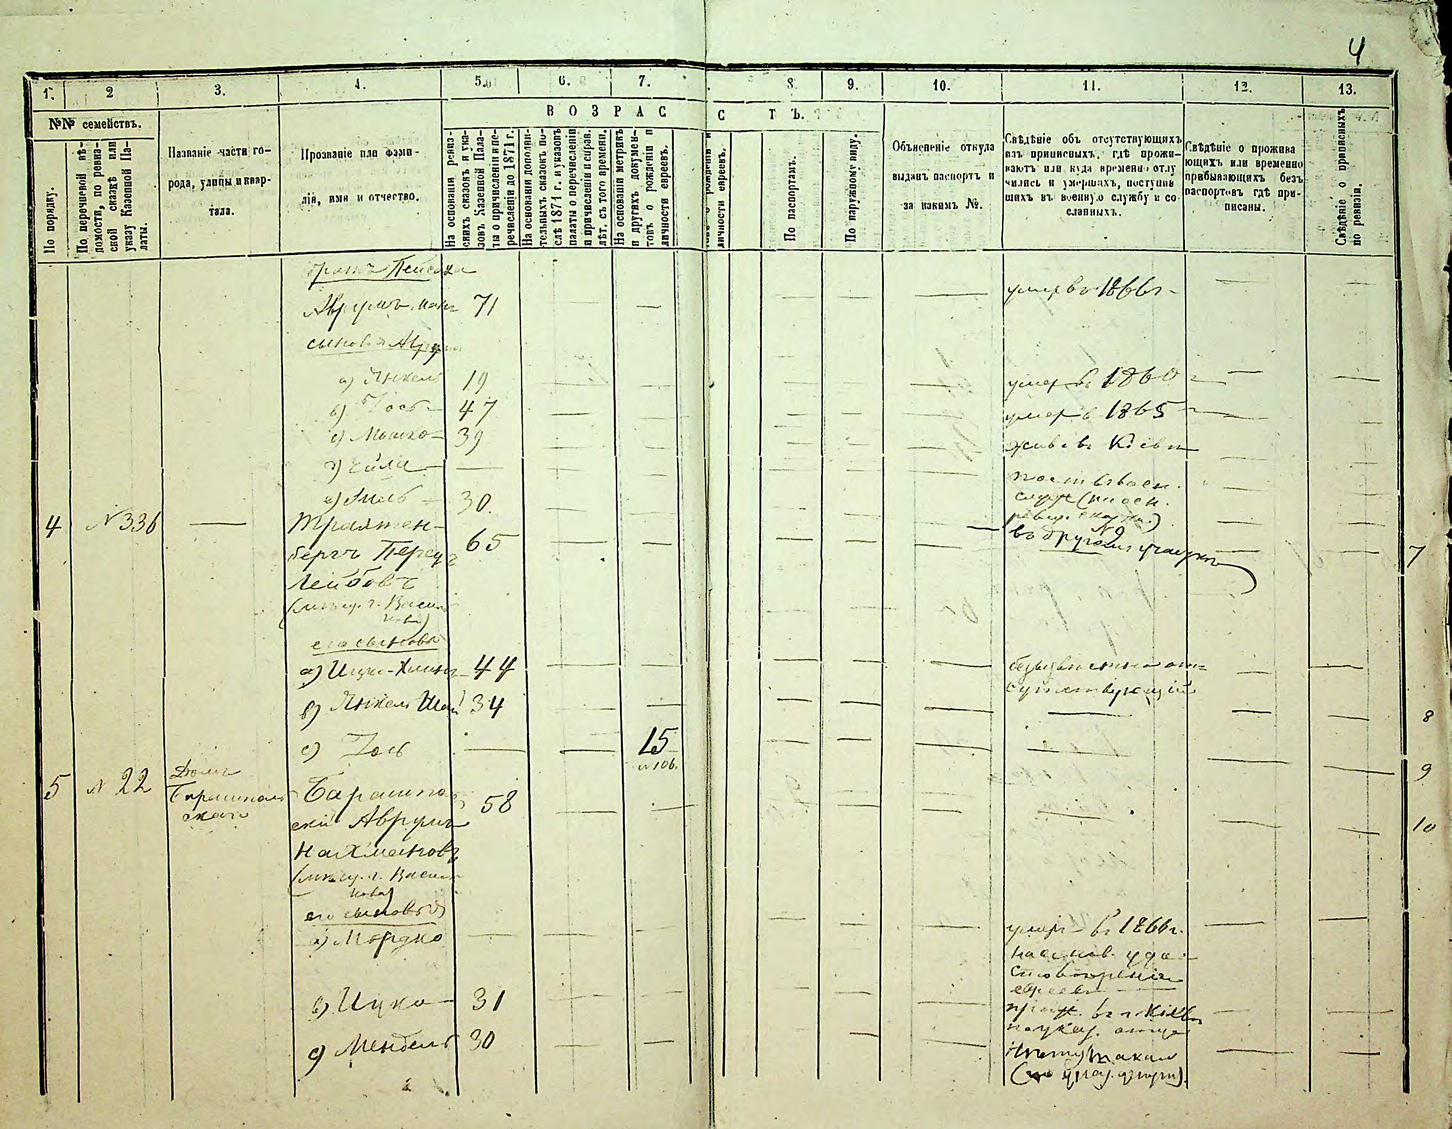 4
1. 2 3. 4. 5. 6. 7. 8. 9. 10. 11. 12. 13.
№№ семействъ.
По порядку.
По перечневой вѣ-
домости, по ревиз-
ской сказкѣ или
указу Казенной Па-
латы.
Названіе части го-
рода, улицы и квар-
тала.
Прозваніе или фами-
лія, имя и отчество.
ВОЗРАСТЪ.
На основаніи ревиз-
скихъ сказокъ и ука-
зовъ Казенной Пала-
ты о причисленіи и пе-
речисленіи до 1871 г.
На основаніи дополни-
тельныхъ сказокъ по-
слѣ 1871 г. и указовъ
палаты о перечисленіи
и причисленіи и справ.
лѣт. съ того времени.
На основаніи метрикъ
и другихъ докумен-
товъ о рожденіи и
личности евреевъ.
По паспортамъ.
По наружному виду.
Объясненіе откуда
выданъ паспортъ и
за какимъ №.
Свѣдѣніе объ отсутствующихъ
изъ приписныхъ, гдѣ прожи-
ваютъ или куда временно отлу
чились и умершихъ, поступив
шихъ въ военную службу и со
сланныхъ.
Свѣдѣніе о прожива
ющихъ или временно
прибывающихъ безъ
паспортовъ гдѣ при-
писаны.
Свѣдѣніе о приписныхъ
по ревизіи.
братъ Пейсаха
Аврумъ 71 — умер въ 1866 г.
сыновья Аврума
а) Янкель 19 — умер в 1860
в) Іось 47 — умер в 1865
с) Мошко 39 — жив. въ Кіевѣ
30
4 № 336 — Трахтен-
бергъ Перецъ 65 — № 9
въ другомъ участкѣ 7
Лейбовъ
(мѣщ. г. Василь
кова)
его сыновья
а) Ицко-Хаимъ 44 — безызвѣстно от-
сутствующій
в) Янкель Шая 34 — 8
с) Іось — 15 — 9
№ 106.
5 № 22 Домъ
Барашполь
скаго
Барашполь
скій Аврумъ 58 — 10
Нахмановъ
(мѣщ. г. Василь
кова)
его сыновья
а) Мордко — умер в 1866 г.
на основ. удо-
стовѣренія
евреевъ
в) Ицко 31 — прож. въ г. Кіевѣ
по указ. отца
с) Мендель 30